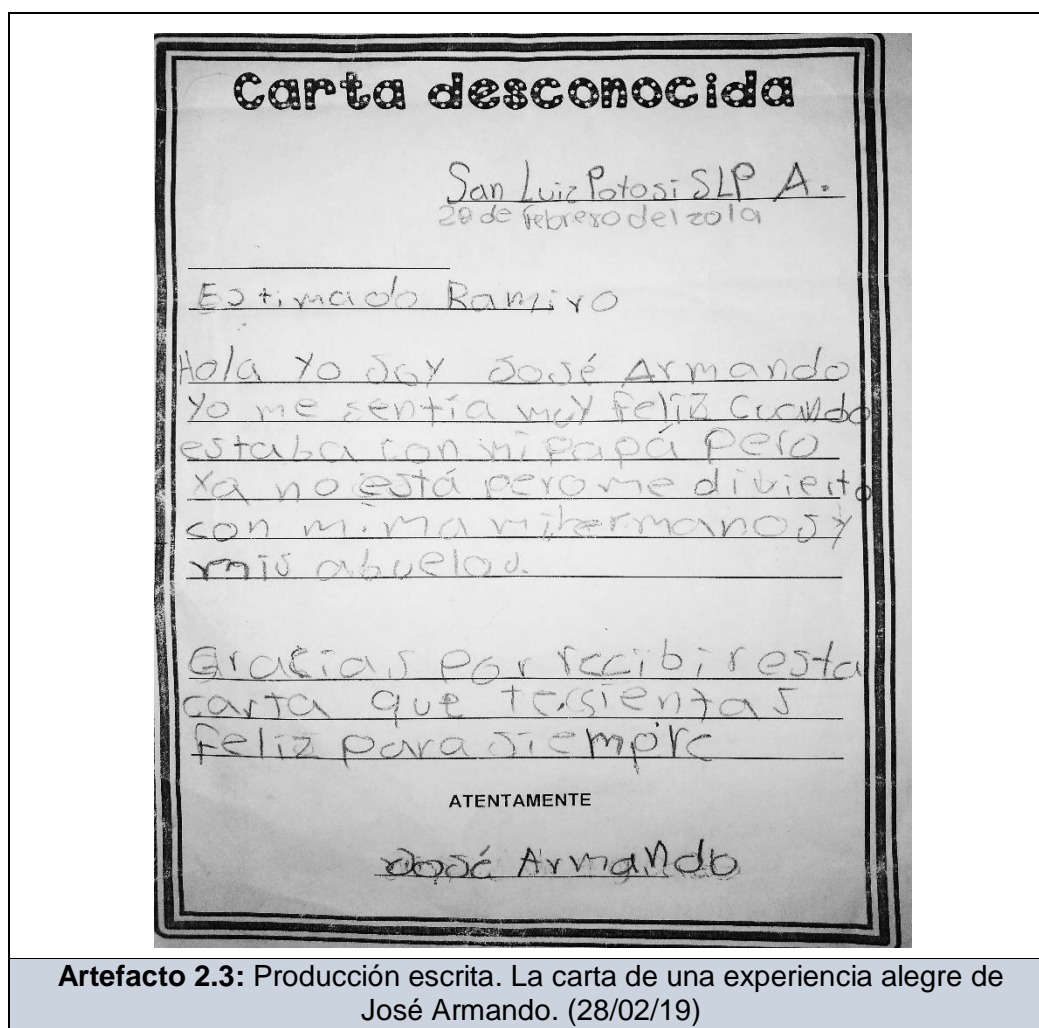 Carta desconocida
San Luiz Potosi SLP A.
28 de febrero del 2019
Estimado Ramiro
Hola Yo soy José Armando
Yo me sentía muy feliz Cuando
estaba con mi papá pero
Ya no está pero me divierto
con mi ma mi hermanos y
mis abuelos.
Gracias por recibir esta
carta que te sientas
feliz para siempre
ATENTAMENTE
José Armando
Artefacto 2.3: Producción escrita. La carta de una experiencia alegre de
José Armando. (28/02/19)